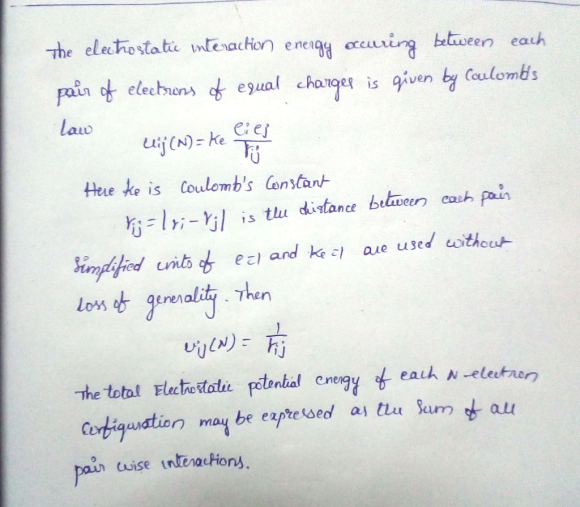 The electrostatic interaction energy occuring between each
pair of electrons of equal charges is given by Coulomb's
law
Uij(N) = ke eiej / rij
Here ke is Coulomb's Constant
rij = |ri - rj| is the distance between each pair
Simplified units of e=1 and ke=1 are used without
loss of generality. Then
Uij(N) = 1 / rij
The total Electrostatic potential energy of each N-electron
Configuration may be expressed as the sum of all
pair wise interactions.